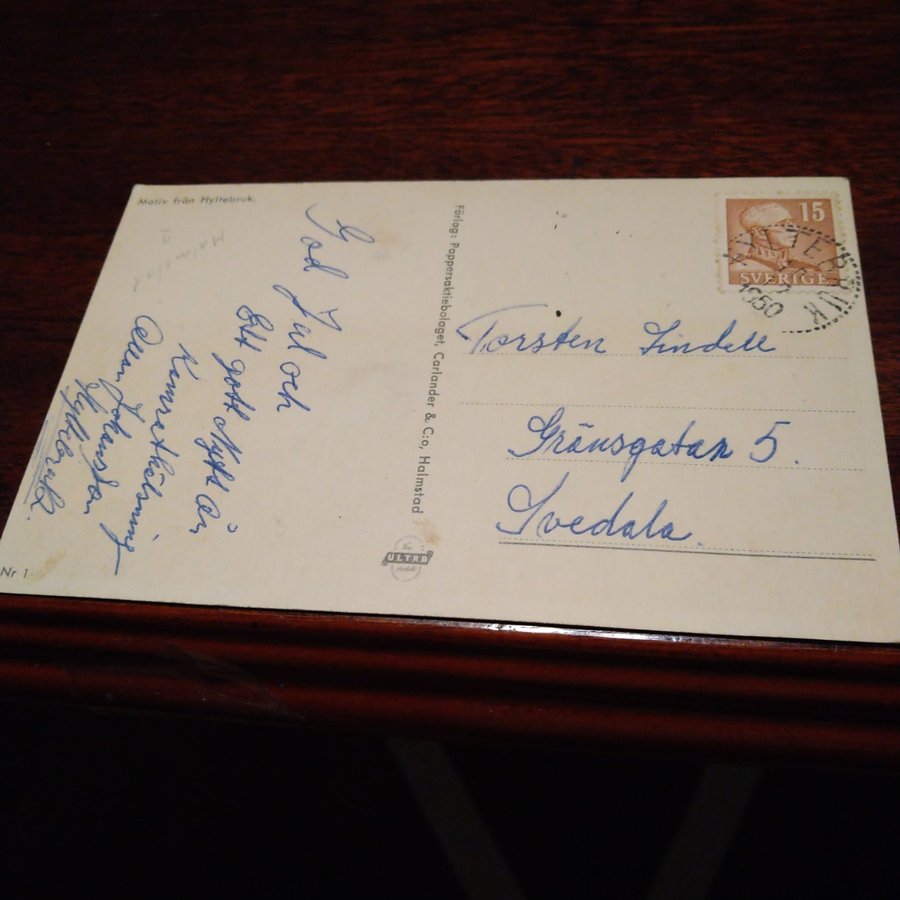 Motiv från Hyltebruk.
Halmstad
God Jul och
Ett gott Nytt år
Kamrathälsning
Johansson
Hyltebruk.
Nr 1
Förlag: Pappersaktiebolaget, Carlander & C:o, Halmstad
ULTRA
15
SVERIGE
HYLTEBRUK
1950
Torsten Lindell
Gränsgatan 5.
Svedala.